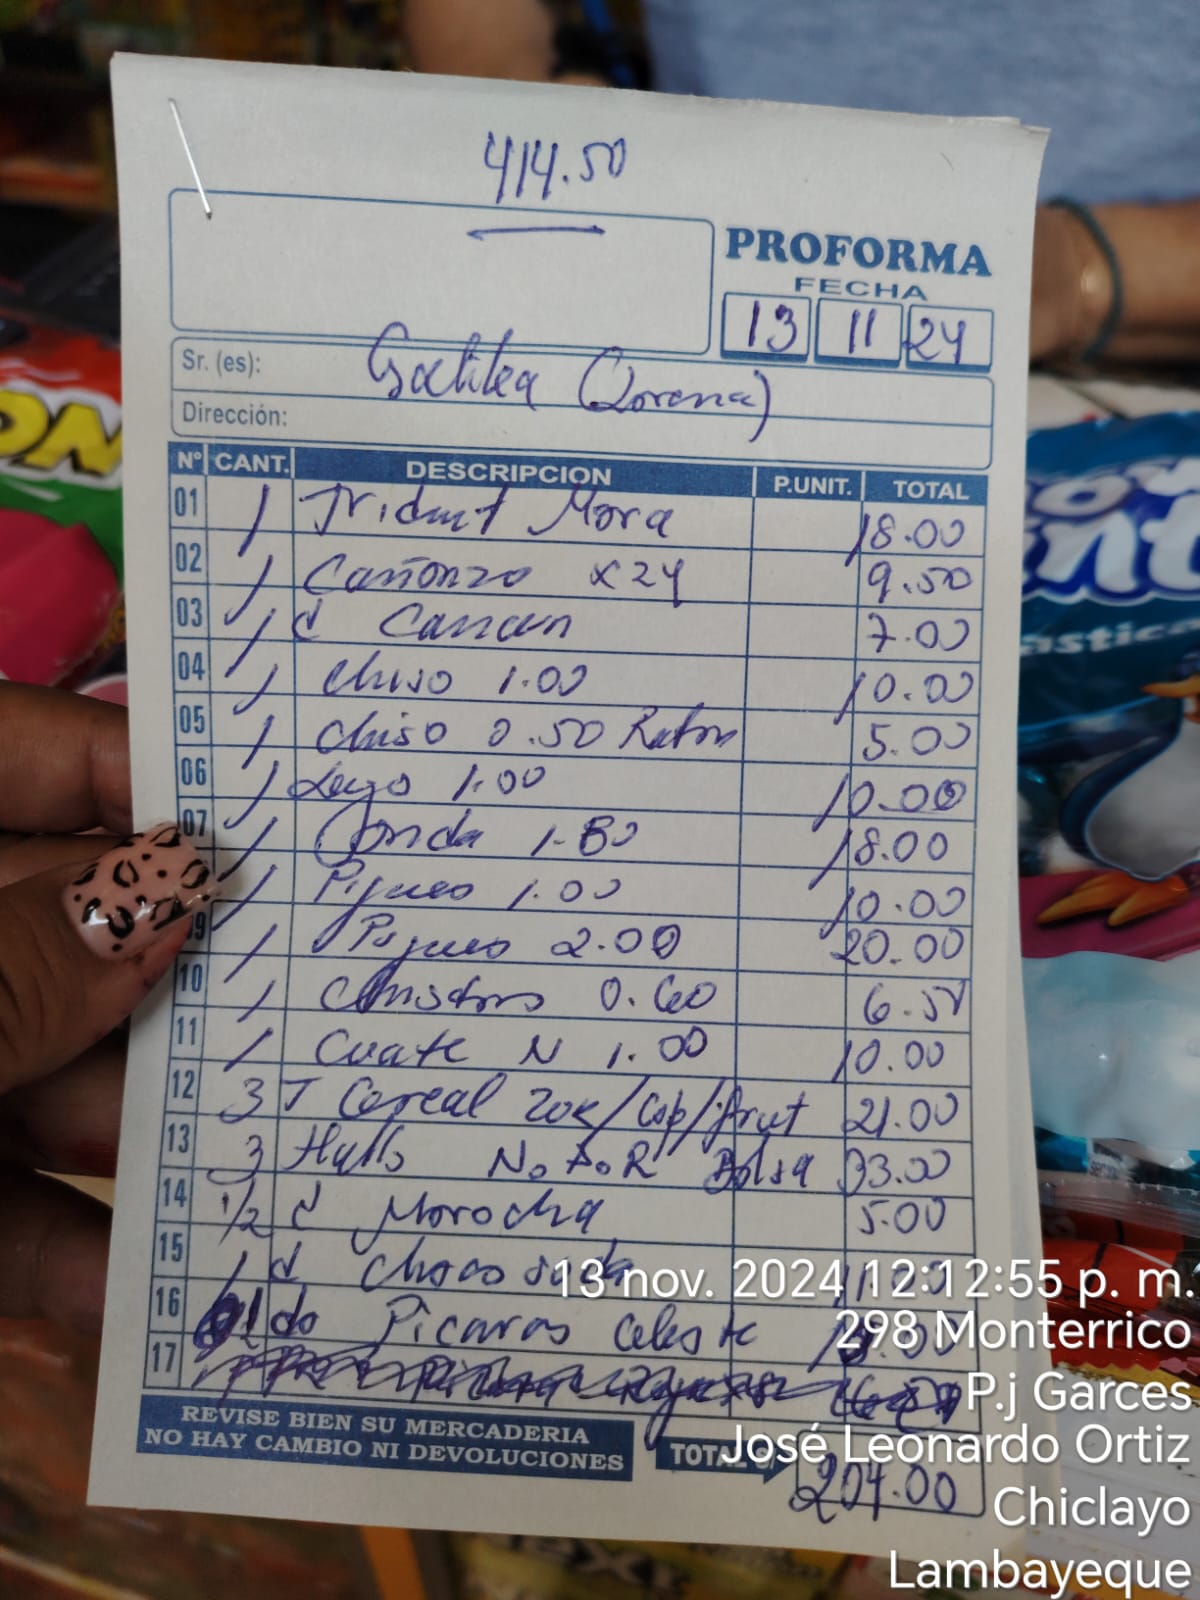 414.50
PROFORMA
FECHA
13 11 24
Sr. (es): Galilea (Lorena)
Dirección:
N° CANT. DESCRIPCION P.UNIT. TOTAL
01 1 Trident Mora 18.00
02 1 Cañonzo x24 9.50
03 1 d Cancun 7.00
04 1 chiso 1.00 10.00
05 1 chiso 0.50 Raton 5.00
06 1 1.00 10.00
07 1 1.80 18.00
1 Piqueo 1.00 10.00
09 1 Piqueo 2.00 20.00
10 1 0.60 6.50
11 1 Cuate N 1.00 10.00
12 3 T Cereal zuk/Cop/frut 21.00
13 3 N.A.R Bolsa 33.00
14 1/2 d Morocha 5.00
15 1 d Choco soda
16 Picaras Celeste
17
REVISE BIEN SU MERCADERIA
NO HAY CAMBIO NI DEVOLUCIONES
TOTAL S/. 204.00
13 nov. 2024 12:12:55 p. m.
298 Monterrico
P.j Garces
José Leonardo Ortiz
Chiclayo
Lambayeque
ON